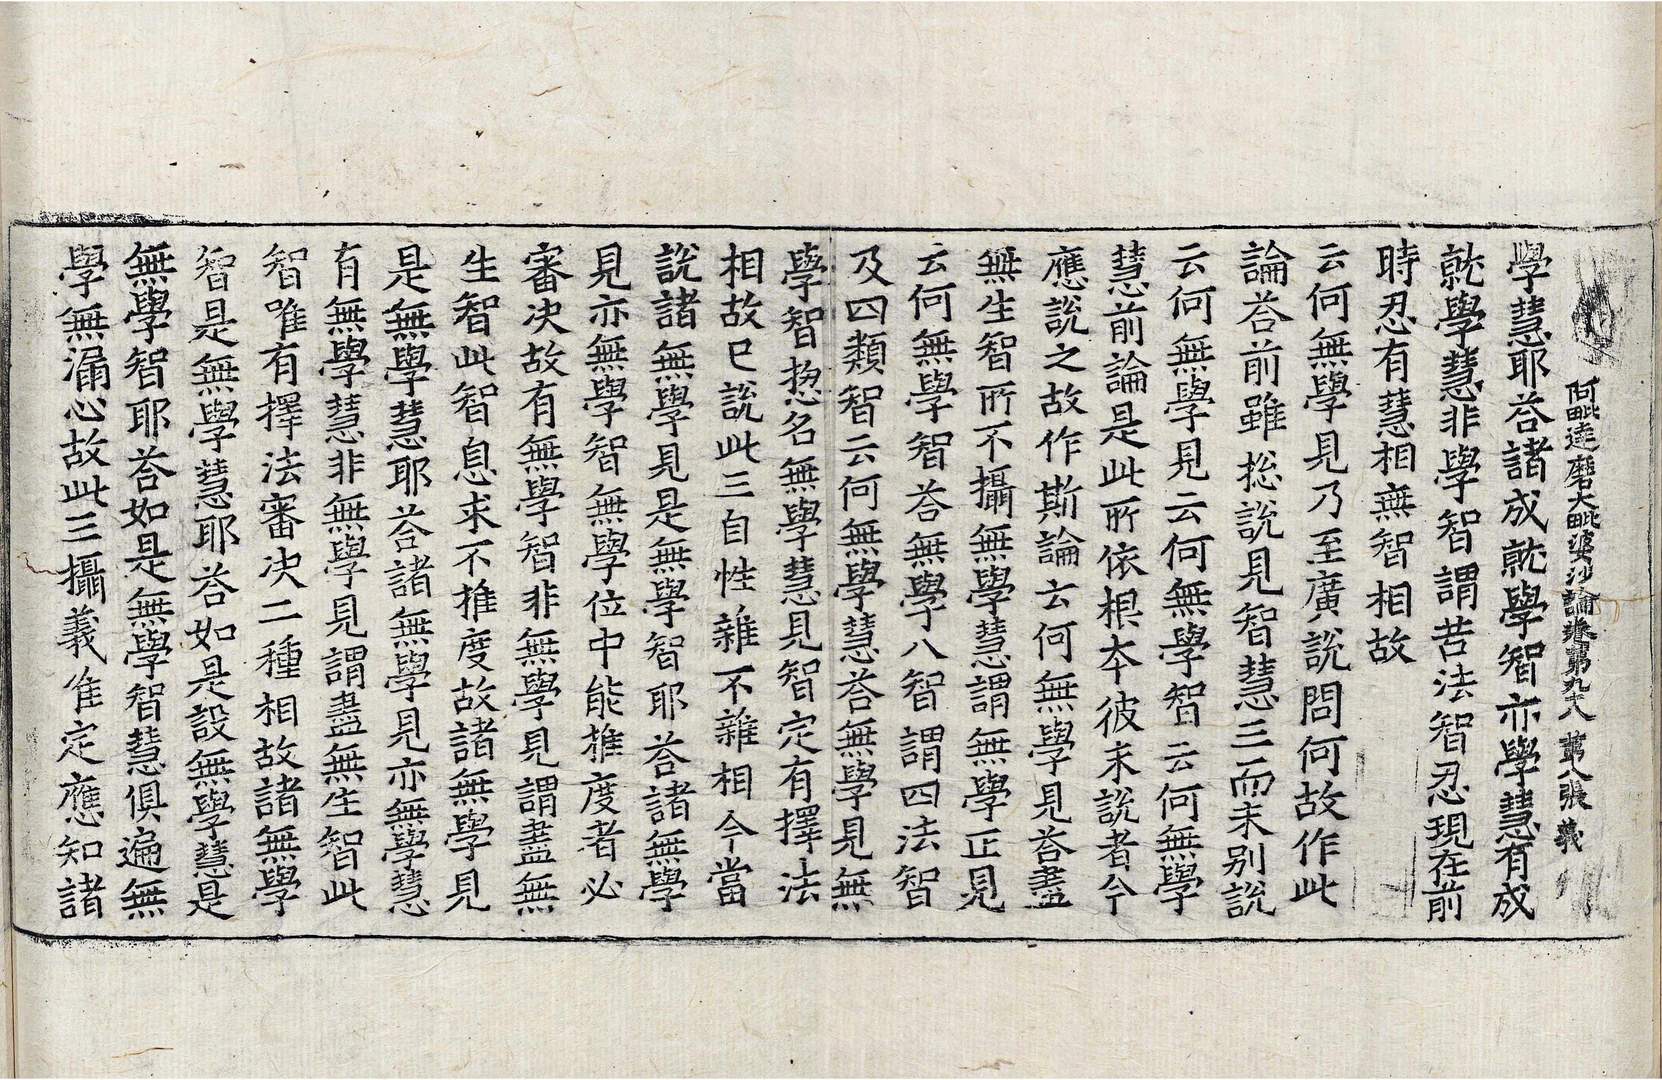 阿毗達磨大毗婆沙論卷第九十八 第八張 義
學慧耶荅諸成就學智亦學慧有成
就學慧非學智謂苦法智忍現在前
時忍有慧相無智相故
云何無學見乃至廣說問何故作此
論荅前雖捴說見智慧三而未别說
云何無學見云何無學智云何無學
慧前論是此所依根本彼未說者今
應說之故作斯論云何無學見荅盡
無生智所不攝無學慧謂無學正見
云何無學智荅無學八智謂四法智
及四類智云何無學慧荅無學見無
學智揔名無學慧見智定有擇法
相故已說此三自性雜不雜相今當
說諸無學見是無學智耶荅諸無學
見亦無學智無學位中能推度者必
審决故有無學智非無學見謂盡無
生智此智息求不推度故諸無學見
是無學慧耶荅諸無學見亦無學慧
有無學慧非無學見謂盡無生智此
智唯有擇法審决二種相故諸無學
智是無學慧耶荅如是設無學慧是
無學智耶荅如是無學智慧俱遍無
學無漏心故此三攝義准定應知諸